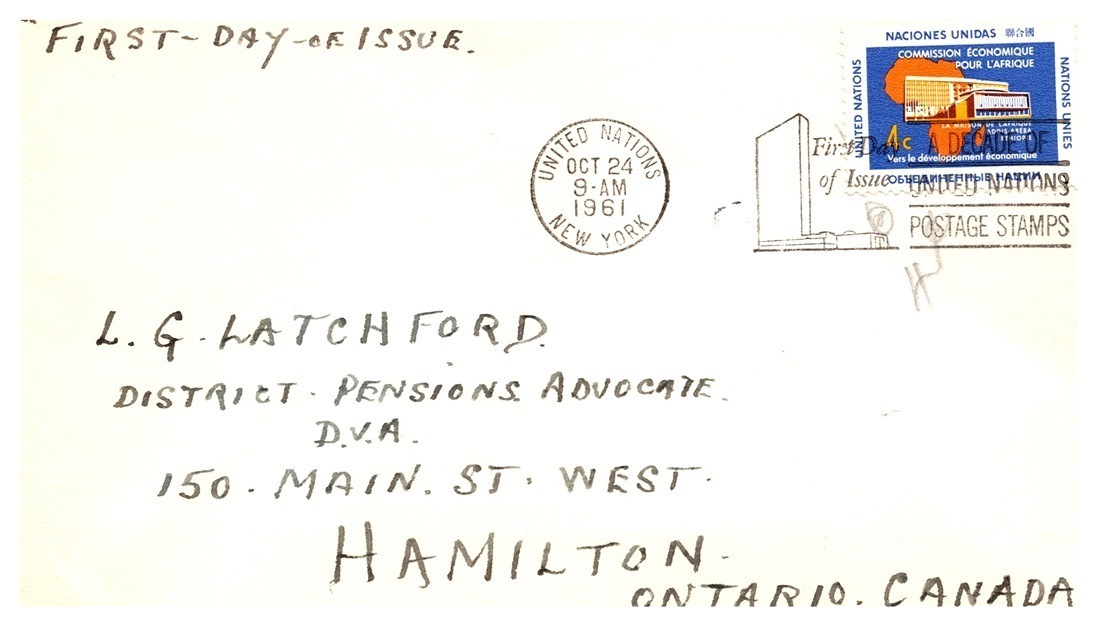 FIRST-DAY-OF ISSUE.
NACIONES UNIDAS 聯合國
COMMISSION ÉCONOMIQUE
POUR L'AFRIQUE
UNITED NATIONS
NATIONS UNIES
LA MAISON DE L'AFRIQUE
ADDIS-ABÉBA
ÉTHIOPIE
4c
Vers le développement économique
ОБЪЕДИНЕННЫЕ НАЦИИ
UNITED NATIONS
OCT 24
9-AM
1961
NEW YORK
First Day
of Issue
A DECADE OF
UNITED NATIONS
POSTAGE STAMPS
L. G. LATCHFORD.
DISTRICT. PENSIONS ADVOCATE.
D.V.A.
150. MAIN. ST. WEST.
HAMILTON.
ONTARIO. CANADA